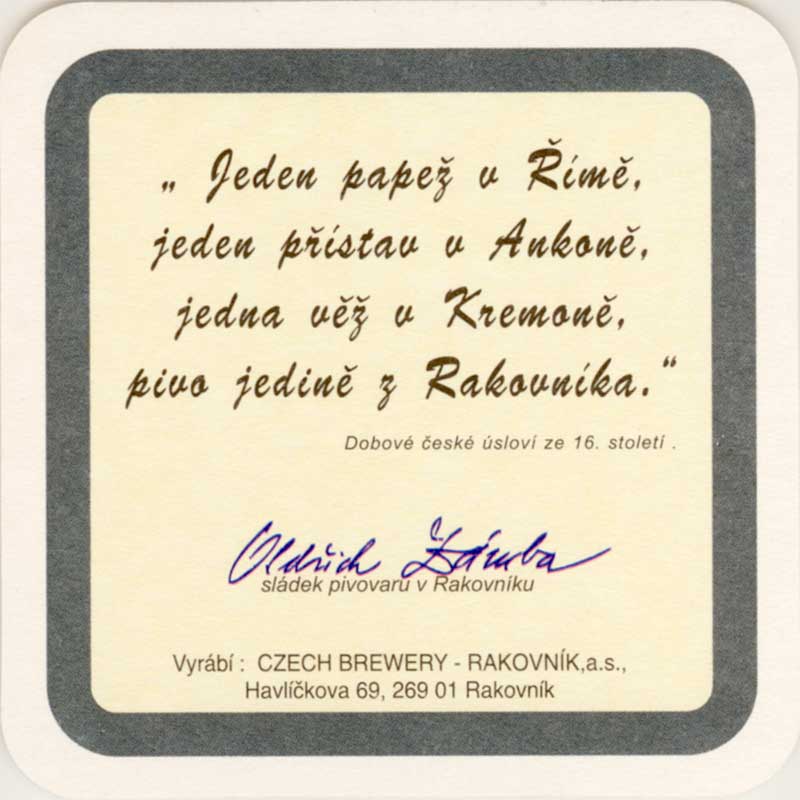 „ Jeden papež v Římě,
jeden přístav v Ankoně,
jedna věž v Kremoně,
pivo jedině z Rakovníka.“
Dobové české úsloví ze 16. století .
Oldřich
sládek pivovaru v Rakovníku
Vyrábí : CZECH BREWERY - RAKOVNÍK,a.s.,
Havlíčkova 69, 269 01 Rakovník